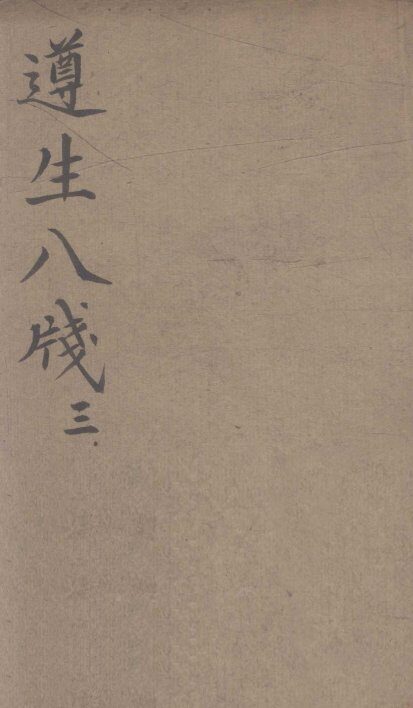 遵生八牋三